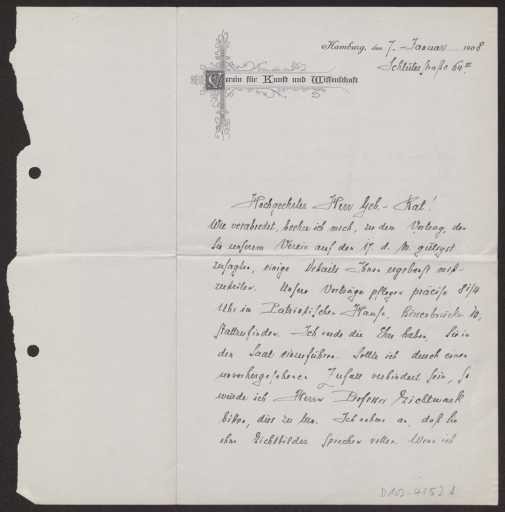 Hamburg, den 7. Januar 1908
Schlüterstraße 64 III
Verein für Kunst und Wissenschaft
Hochgeehrter Herr Geh.-Rat!
Wie verabredet, beehre ich mich, zu dem Vortrag, den
Sie unserem Verein auf den 17. d. M. gütigst
zusagten, einige Details Ihnen ergebenst mit-
zuteilen. Unsere Vorträge pflegen präcise 8 1/4
Uhr im Patriotischen Hause, Börsenbrücke 10,
stattzufinden. Ich werde die Ehre haben, Sie in
den Saal einzuführen. Sollte ich durch einen
unvorhergesehenen Zufall verhindert sein, so
würde ich Herrn Professor Lichtwark
bitten, dies zu tun. Ich nehme an, daß Sie
ohne Lichtbilder sprechen wollen. Wenn ich